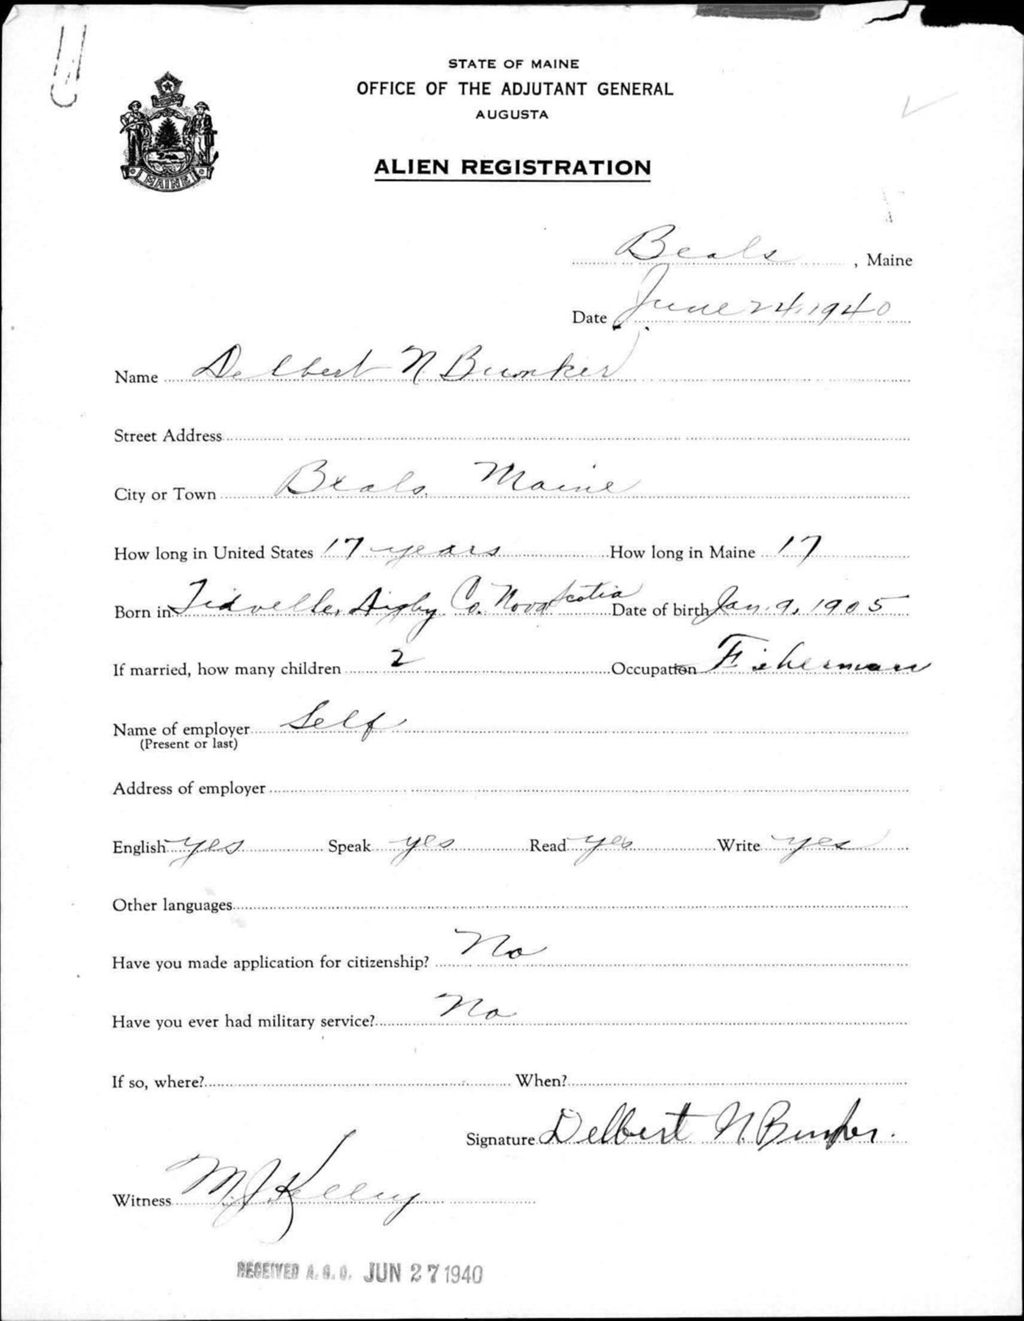 STATE OF MAINE
OFFICE OF THE ADJUTANT GENERAL
AUGUSTA
ALIEN REGISTRATION
MAINE
Beals, Maine
Date June 24, 1940
Name Delbert N Bunker
Street Address
City or Town Beals, Maine
How long in United States 17 years How long in Maine 17
Born in Tidvelle, Digby Co. Nova Scotia Date of birth Jan. 9, 1905
If married, how many children 2 Occupation Fisherman
Name of employer Self
(Present or last)
Address of employer
English yes Speak yes Read yes Write yes
Other languages
Have you made application for citizenship? No
Have you ever had military service? No
If so, where? When?
Signature Delbert N Bunker.
Witness M J Kelley
RECEIVED A.G.O. JUN 27 1940